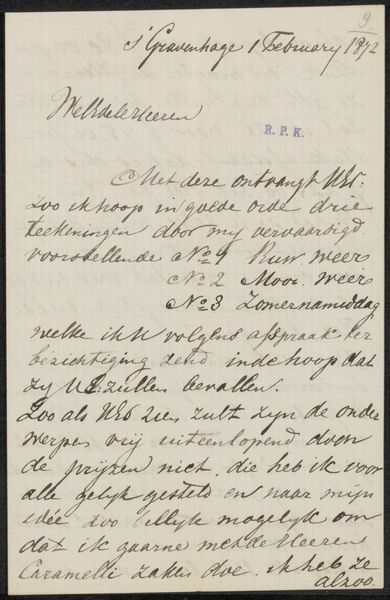 9
s'Gravenhage 1 February 1872
WelEdele Heeren
R.P.K.
Met deze ontvangt UEd:
zoo ik hoop in goede orde drie
teekeningen door my vervaardigd
voorstellende No 1 Ruw. weer
No 2 Mooi. weer
No 3 Zomernamiddag
welke ik U volgens afspraak ter
bezichtiging zend in de hoop dat
zy UE: zullen bevallen.
Zoo als UEd zien zult zyn de onder
werpen vrij uiteenlopend doch
de prijzen niet, die heb ik voor
alle gelyk gesteld en naar mijn
idée zoo billyk mogelyk om
dat ik gaarne met de Heeren
Caramelli zaken doe. ik heb ze
alzoo